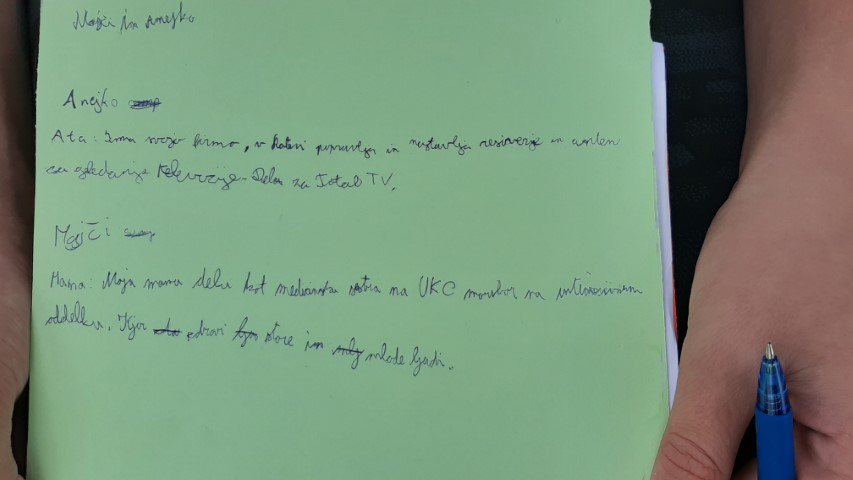 Majči in Anejko
Anejko
Ata: Ima svojo firmo, v kateri popravlja in nastavlja resiverje in anten
za gledanje televizije. Dela za Total TV.
Majči
Mama: Moja mama dela kot medicinska sestra na UKC maribor na
oddelku. Kjer zdravi stare in mlade ljudi.